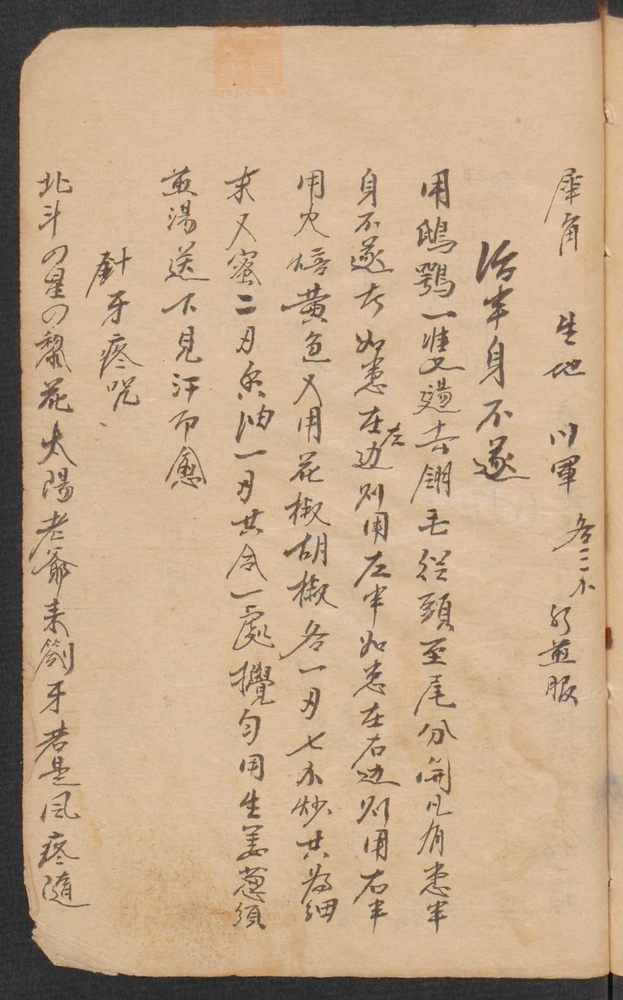 犀角 生地 川軍 各三小 煎服
治半身不遂
用鴟鴞一隻燙去翎毛從頭至尾分開凡有患半
身不遂者如患在左边則用左半如患在右边則用右半
用火焙黄色又用花椒胡椒各一刃七小炒共為細
末又蜜二刃香油一刃共合一處攪匀用生姜葱須
煎湯送下見汗而愈
針牙疼咒
北斗の星の梨花太陽老爺来劄牙若是風疼隨